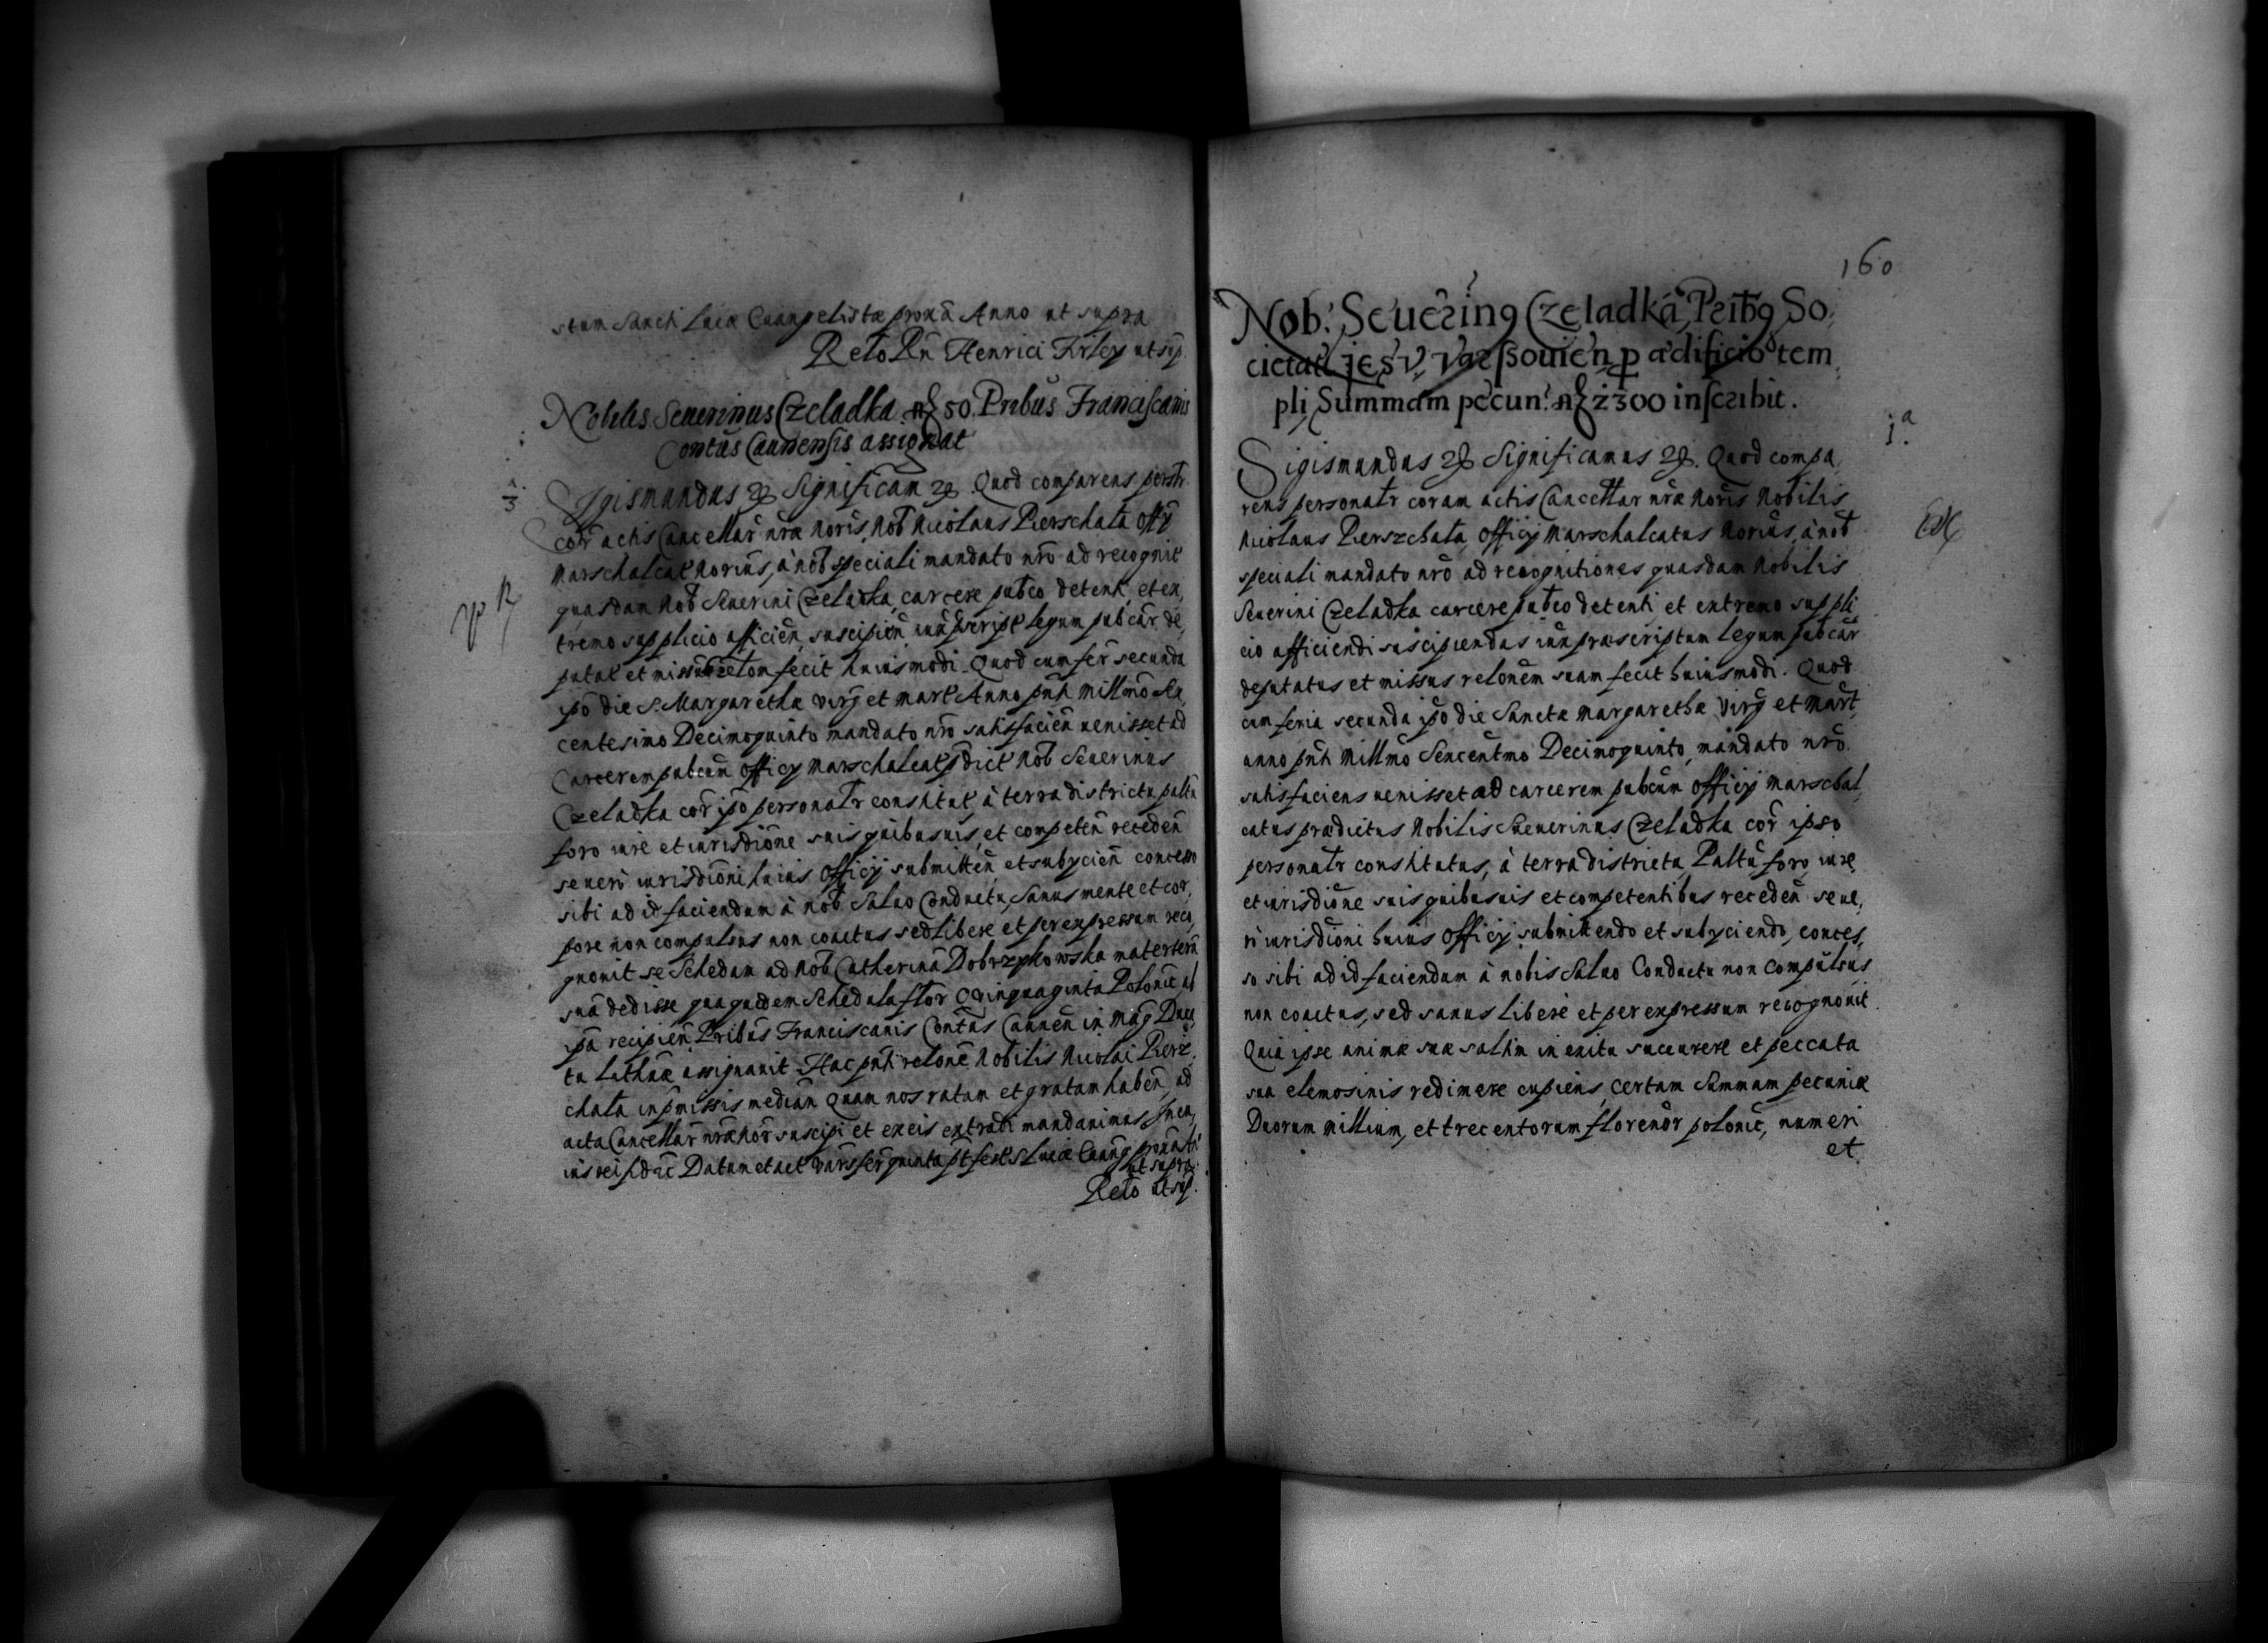 stum Sancti Lucæ Euangelistæ proxā Anno ut supra
Relo Rn̄ Henrici Firley ut sup.
Nobilis Seuerinus Czeladka fl 50. Prībus Franciscanis
Conūtus Caunensis assignat
Sigismundus &c Significam &c. Quod comparens persr̄
cor̄ actis Cancellar̄ nr̄æ noris, Nob̄ Nicolaus Pierschała Offȳ
Marschalcat̄ Norius, à nob̄ speciali mandato nr̄o ad recognit̄
quasdam Nob̄ Seuerini Czeladka, carcere pub̄co detent̄, et ex,
tremo supplicio afficien̄, suscipien̄ iuxā p̄script̄ legum pub̄car̄ de,
putat̄ et missus relōnem fecit huiusmodi. Quod cum fer̄ secunda
ip̄o die S. Margarethæ Virḡ et Mart̄ Anno p̄nti Mill̄mo Sex,
centesimo Decimoquinto mandato nr̄o satisfacien̄ uenisset ad
Carcerem pub̄cum Officy Marschalcat̄ p̄dict̄ Nob̄ Seuerinus
Czeladka cor̄ ip̄o personal̄r constitut̄, à terra districtu paltū
foro iure et iurisdiōne suis quibusuis, et competen̄ receden̄
seueri iurisdiōni huius Officij submitten̄, et subycien̄ concesso
sibi ad id faciendum à nob̄ Saluo Conductu, Sanus mente et cor,
pore non compulsus non coactus sed libere et per expressum reco,
gnouit se Schedam ad Nob̄ Catherinā Dobrzykowska materterā
suā dedisse qua quidem Schedula flor̄ Quinquaginta Polonic̄ ab
ip̄a recipien̄. Pribus Franciscanis Conūtus Caunen̄ in Mag̅ Duca,
tu Lithuæ assignauit. Hac p̄nti relōne Nobilis Nicolai Piersz,
chała in p̄missis median̄ Quam nos ratam et gratam haben̄, ad
acta Cancellar̄ nr̄æ Nor̄ suscipi et ex eis extradi mandauimus. In cu,
ius rei fid̄ &c Datum et act̄ Vars̄ fer̄ quinta p̄t fest̄ S. Lucæ Euang̅ proxā A°
ut supra.
Relo ut sup.
160
Nob: Seuerinꝯ Czeladka, Prib̄ꝯ So,
cietati Jesu, Varssouien̄ p ædificio tem,
pli, Summam pecun: fl 2300 inscribit.
Sigismundus &c Significamus &c. Quod compa,
rens personal̄r coram actis Cancellar̄ nr̄æ Noris Nobilis
Nicolaus Pierszchała, Officij Marschalcatus Norius, à nob̄
speciali mandato nr̄o ad recognitiones quasdam Nobilis
Seuerini Czeladka carcere pub̄co detenti et extremo suppli
cio afficiendi suscipiendas iuxā præscriptum legum pub̄car̄
deputatus et missus relōnem suam fecit huiusmodi. Quod
cum feria secunda ip̄o die Sanctæ Margarethæ Virḡ et Mart̄,
anno p̄nti Mill̄mo Sexcen̄tmo Decimoquinto, mandato nr̄o
satisfaciens uenisset ad carcerem pub̄cum Officij Marschal,
catus prædictus Nobilis Seuerinus Czeladka cor̄ ipso
personal̄r constitutus, à terra districtu, Paltū foro, iure,
et iurisdiōne suis quibusuis et competentibus receden̄ seue,
ri iurisdiōni huius Officij submittendo et subyciendo, conces,
so sibi ad id faciendum à nobis Saluo Conductu non compulsus
non coactus, sed sanus liberè et per expressum recognouit
Quia ipse animæ suæ saltim in exitu succurrere et peccata
sua elemosinis redimere cupiens, certam Summam pecuniæ
Duorum Millium, et trecentorum florenor̄ polonic̄, numeri
et